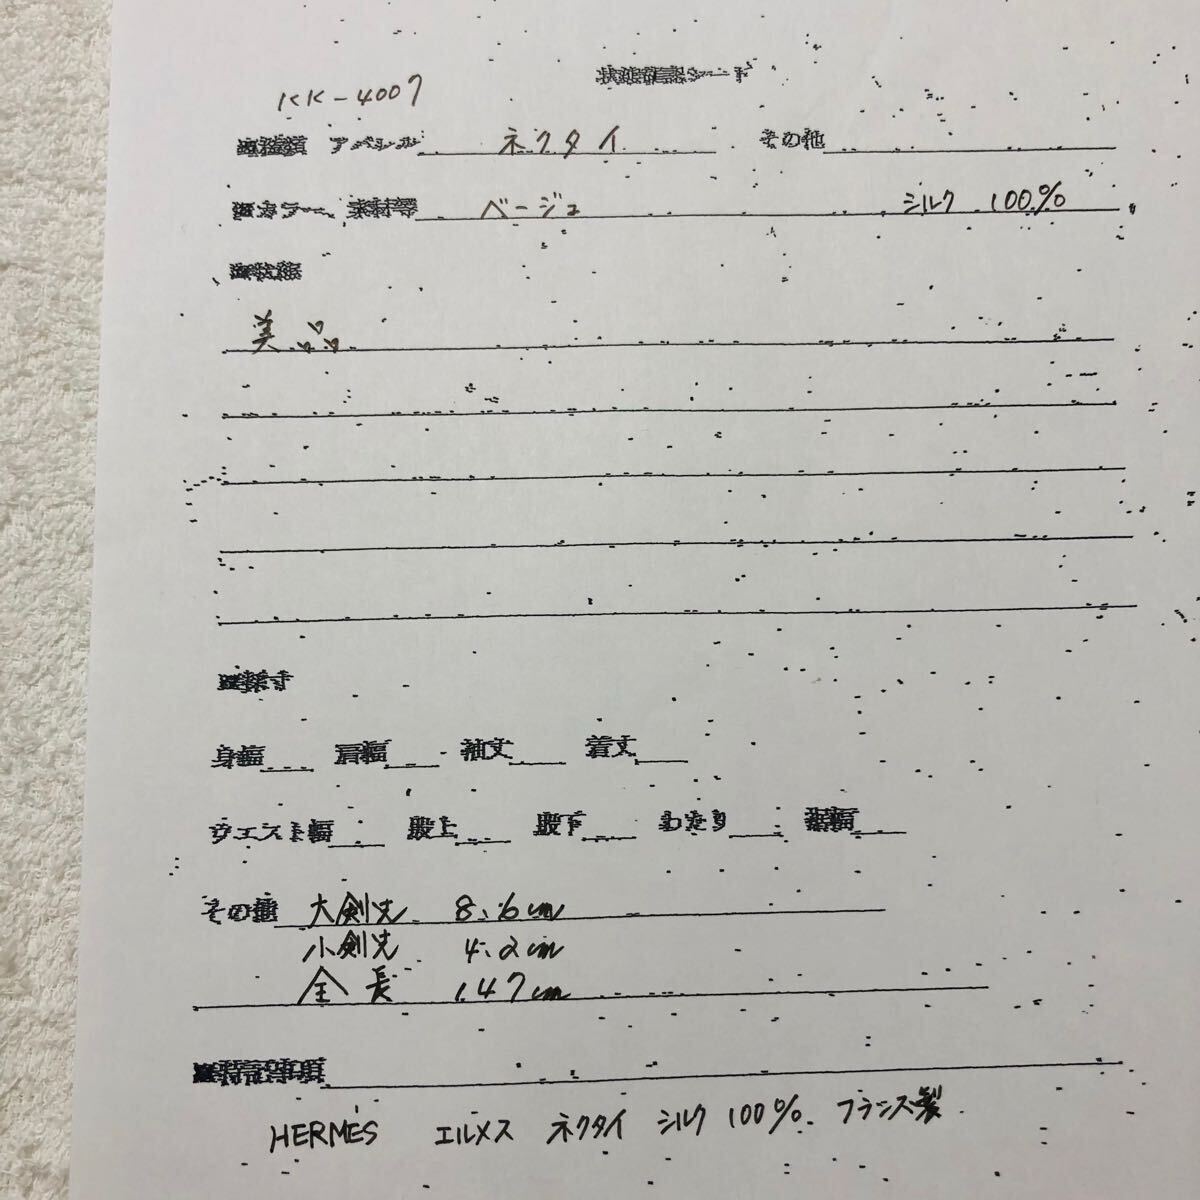 状態確認シート
KK-4007
■種類 アパレル ネクタイ その他
■カラー、素材等 ベージュ シルク 100%
■状態
美品
■採寸
身幅 肩幅 袖丈 着丈
ウエスト幅 股上 股下 わたり 裾幅
その他 大剣丈 8.6cm
小剣丈 4.2cm
全長 147cm
■特記事項
HERMES エルメス ネクタイ シルク 100% フランス製